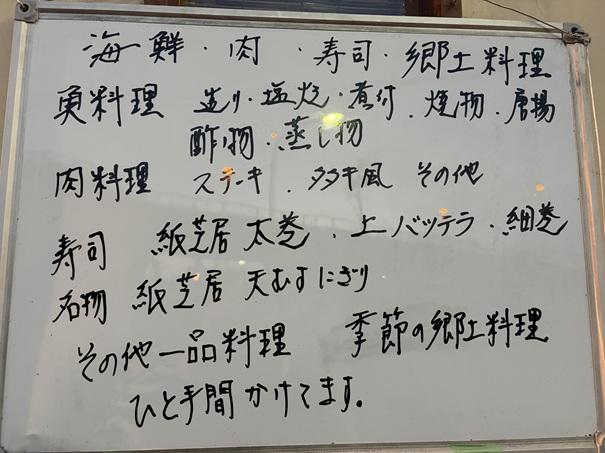 海鮮・肉・寿司・郷土料理
魚料理 造り・塩焼・煮付・焼物・唐揚
酢の物・蒸し物
肉料理 ステーキ・タタキ風 その他
寿司 紙芝居 太巻・上バッテラ・細巻
名物 紙芝居 天むすにぎり
その他一品料理 季節の郷土料理
ひと手間かけてます。